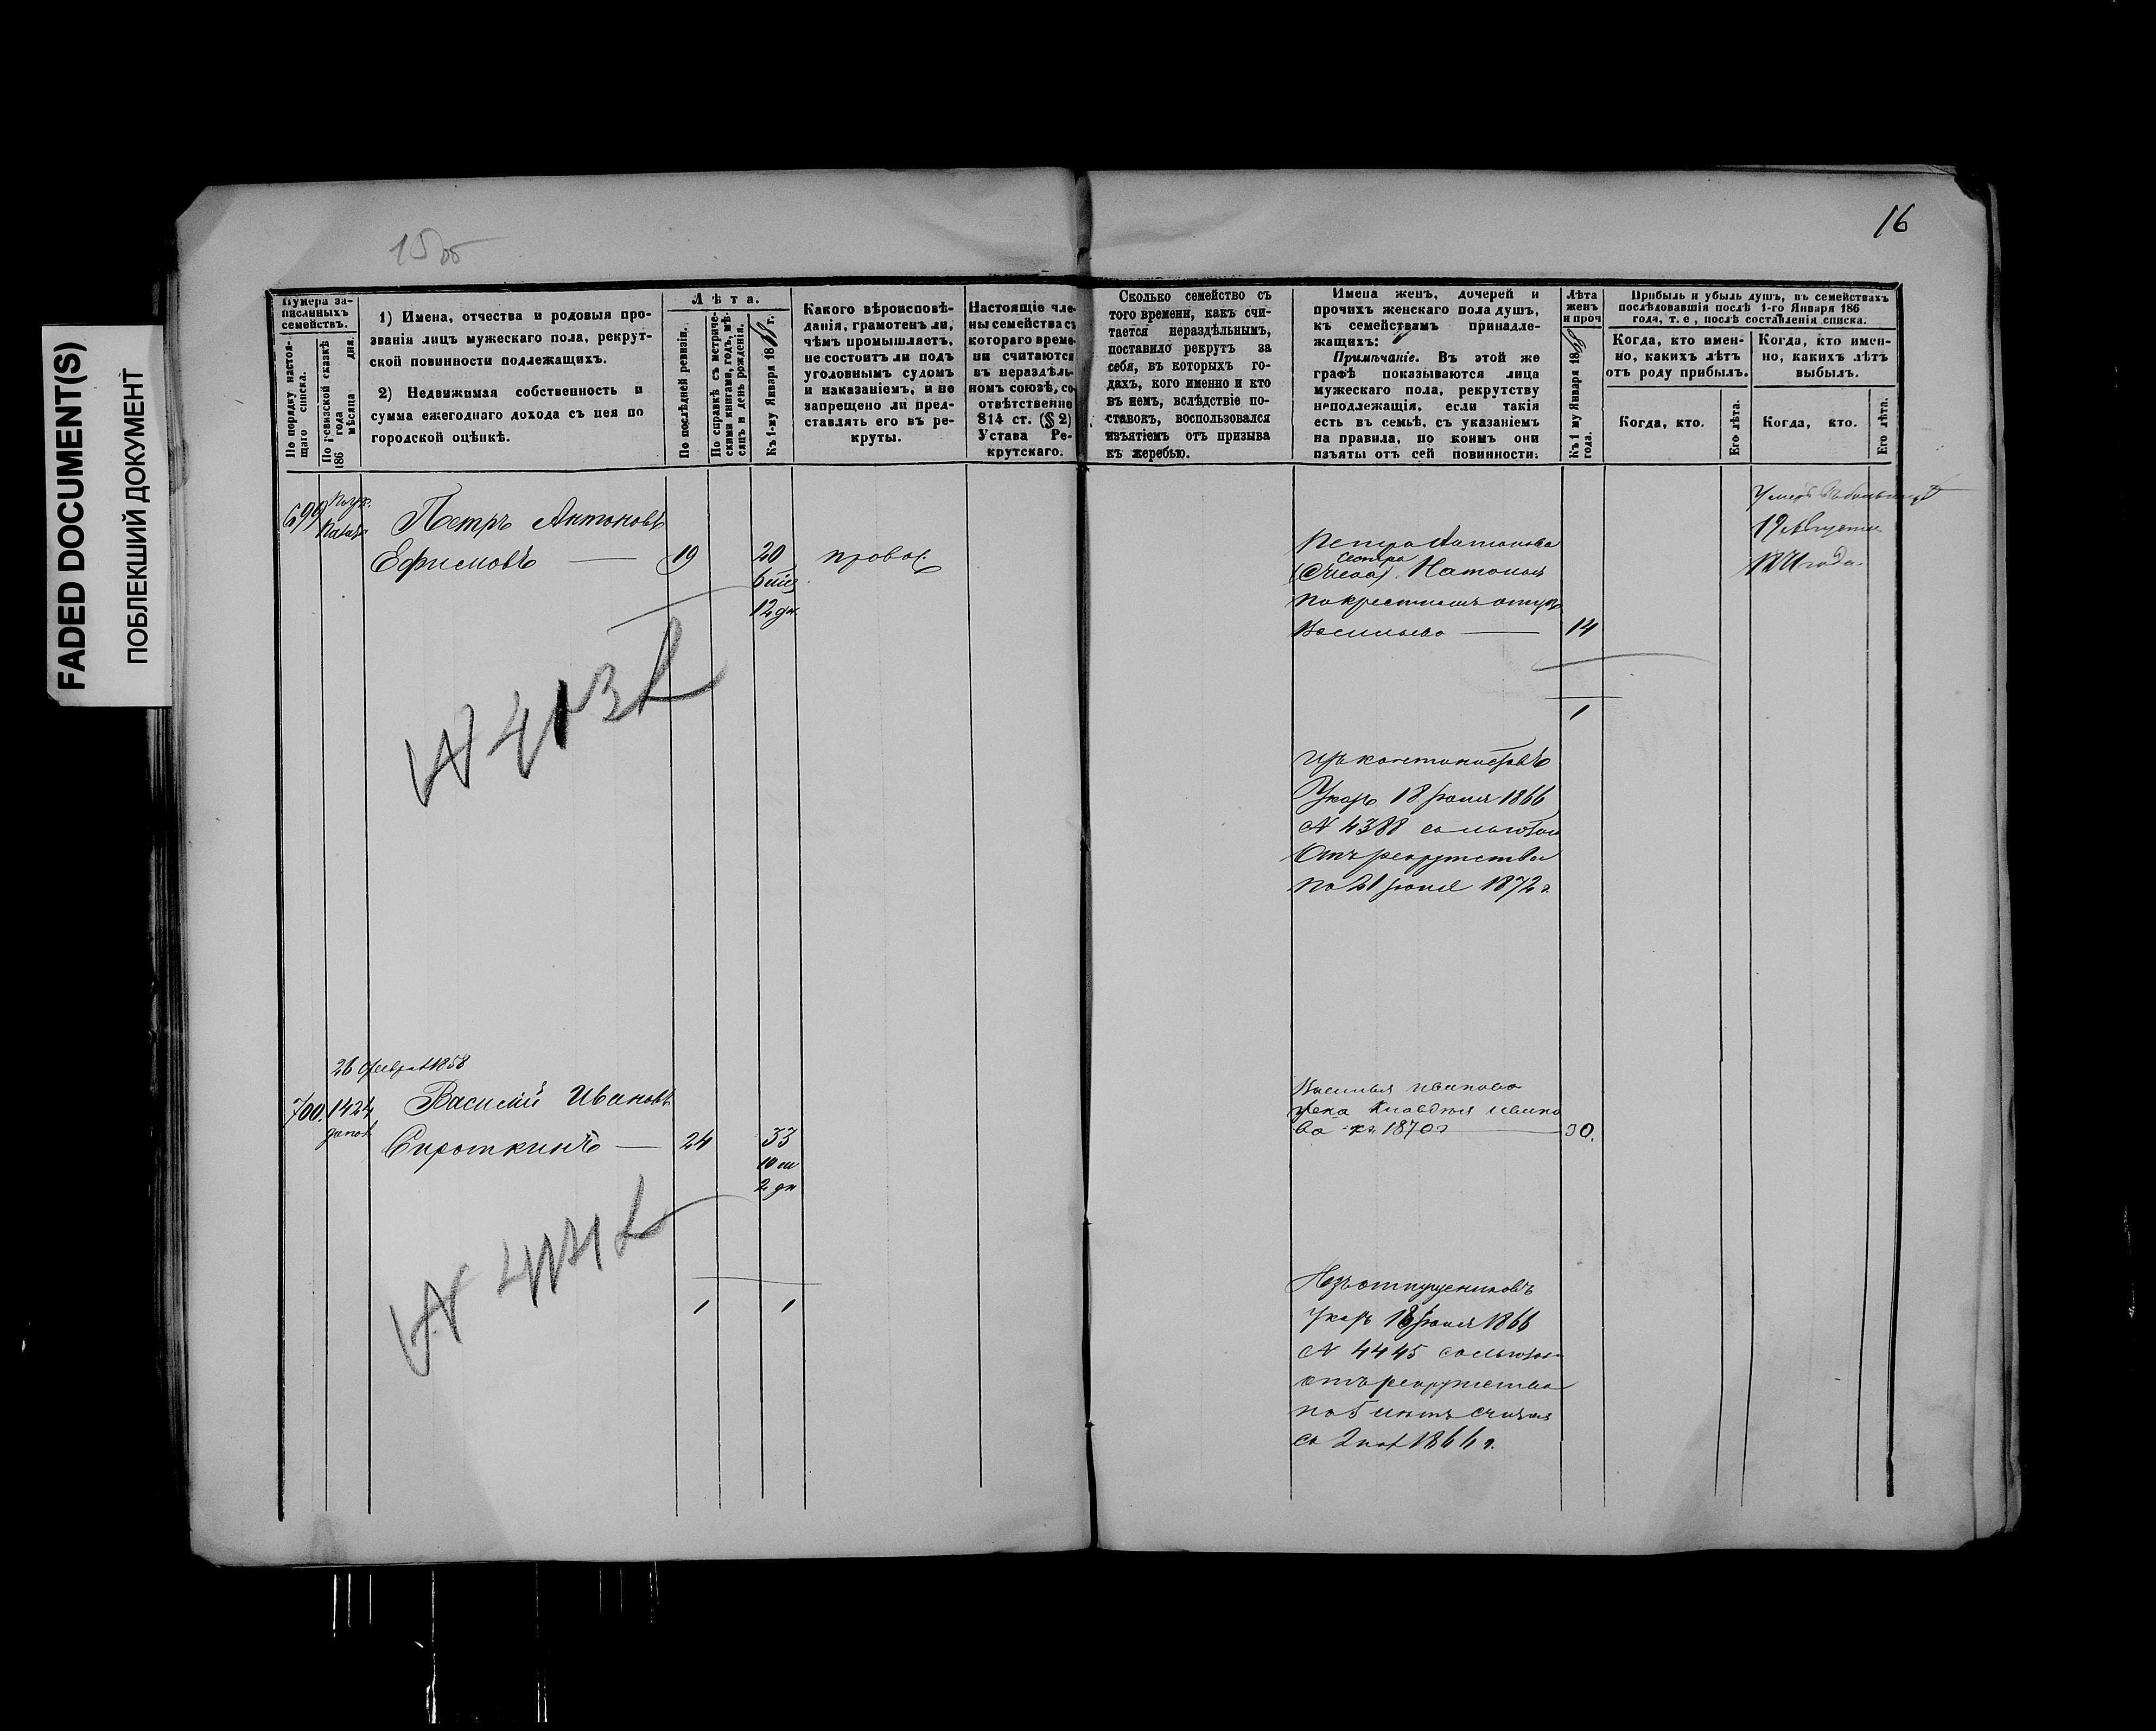 FADED DOCUMENT(S)
ПОБЛЕКШИЙ ДОКУМЕНТ
16
Нумера за-
писанныхъ
семействъ.
По порядку настоя-
щаго списка.
По ревизской сказкѣ
186 года
мѣсяца дня.
1) Имена, отчества и родовыя про-
званія лицъ мужескаго пола, рекрут-
ской повинности подлежащихъ.
2) Недвижимая собственность и
сумма ежегоднаго дохода съ нея по
городской оцѣнкѣ.
Лѣта.
По послѣдней ревизіи.
По справкѣ съ метриче-
скими книгами, годъ, мѣ-
сяцъ и день рожденія.
Къ 1-му Января 18 г.
Какого вѣроисповѣ-
данія, грамотенъ ли,
чѣмъ промышляетъ,
не состоитъ ли подъ
уголовнымъ судомъ
и наказаніемъ, и не
запрещено ли пред-
ставлять его въ ре-
круты.
Настоящіе чле-
ны семейства съ
котораго време-
ни считаются
въ нераздѣль-
номъ союзѣ, со-
отвѣтственно
814 ст. (§ 2)
Устава Ре-
крутскаго.
Сколько семейство съ
того времени, какъ счи-
тается нераздѣльнымъ,
поставило рекрутъ за
себя, въ которыхъ го-
дахъ, кого именно и кто
въ немъ, вслѣдствіе по-
ставокъ, воспользовался
изъятіемъ отъ призыва
къ жеребью.
Имена женъ, дочерей и
прочихъ женскаго пола душъ,
къ семействамъ принадле-
жащихъ:
Примѣчаніе. Въ этой же
графѣ показываются лица
мужескаго пола, рекрутству
неподлежащія, если такія
есть въ семьѣ, съ указаніемъ
на правила, по коимъ они
изъяты отъ сей повинности.
Лѣта
женъ
и проч
Къ 1 му Января 18
года.
Прибыль и убыль душъ, въ семействахъ
послѣдовавшія послѣ 1-го Января 186
года, т. е., послѣ составленія списка.
Когда, кто имен-
но, какихъ лѣтъ
отъ роду прибылъ.
Когда, кто.
Его лѣта.
Когда, кто имен-
но, какихъ лѣтъ
выбылъ.
Когда, кто.
Его лѣта.
699
Петръ Антоновъ
Ефимовъ 19 20
12 дн
Петра Антонова
сестра
Наталья
по крестному отцу
Васильева 14
1
изъ кантонистовъ
Указъ 18 Іюня 1866
N 4388 со льготою
отъ рекрутства
по 21 Іюня 1872 г.
Умеръ
19 Августа
года.
26 Февраля 1858
700. 1424
Василій Ивановъ
Сироткинъ 24 33
10 м
2 дн
1 1
Василья Иванова
жена Клавдія Ивано
ва 1870 г 30.
Изъ отпущениковъ
Указъ 18 Іюня 1866
N 4445 со льготою
отъ рекрутства
на 5 лѣтъ считая
1866 г.